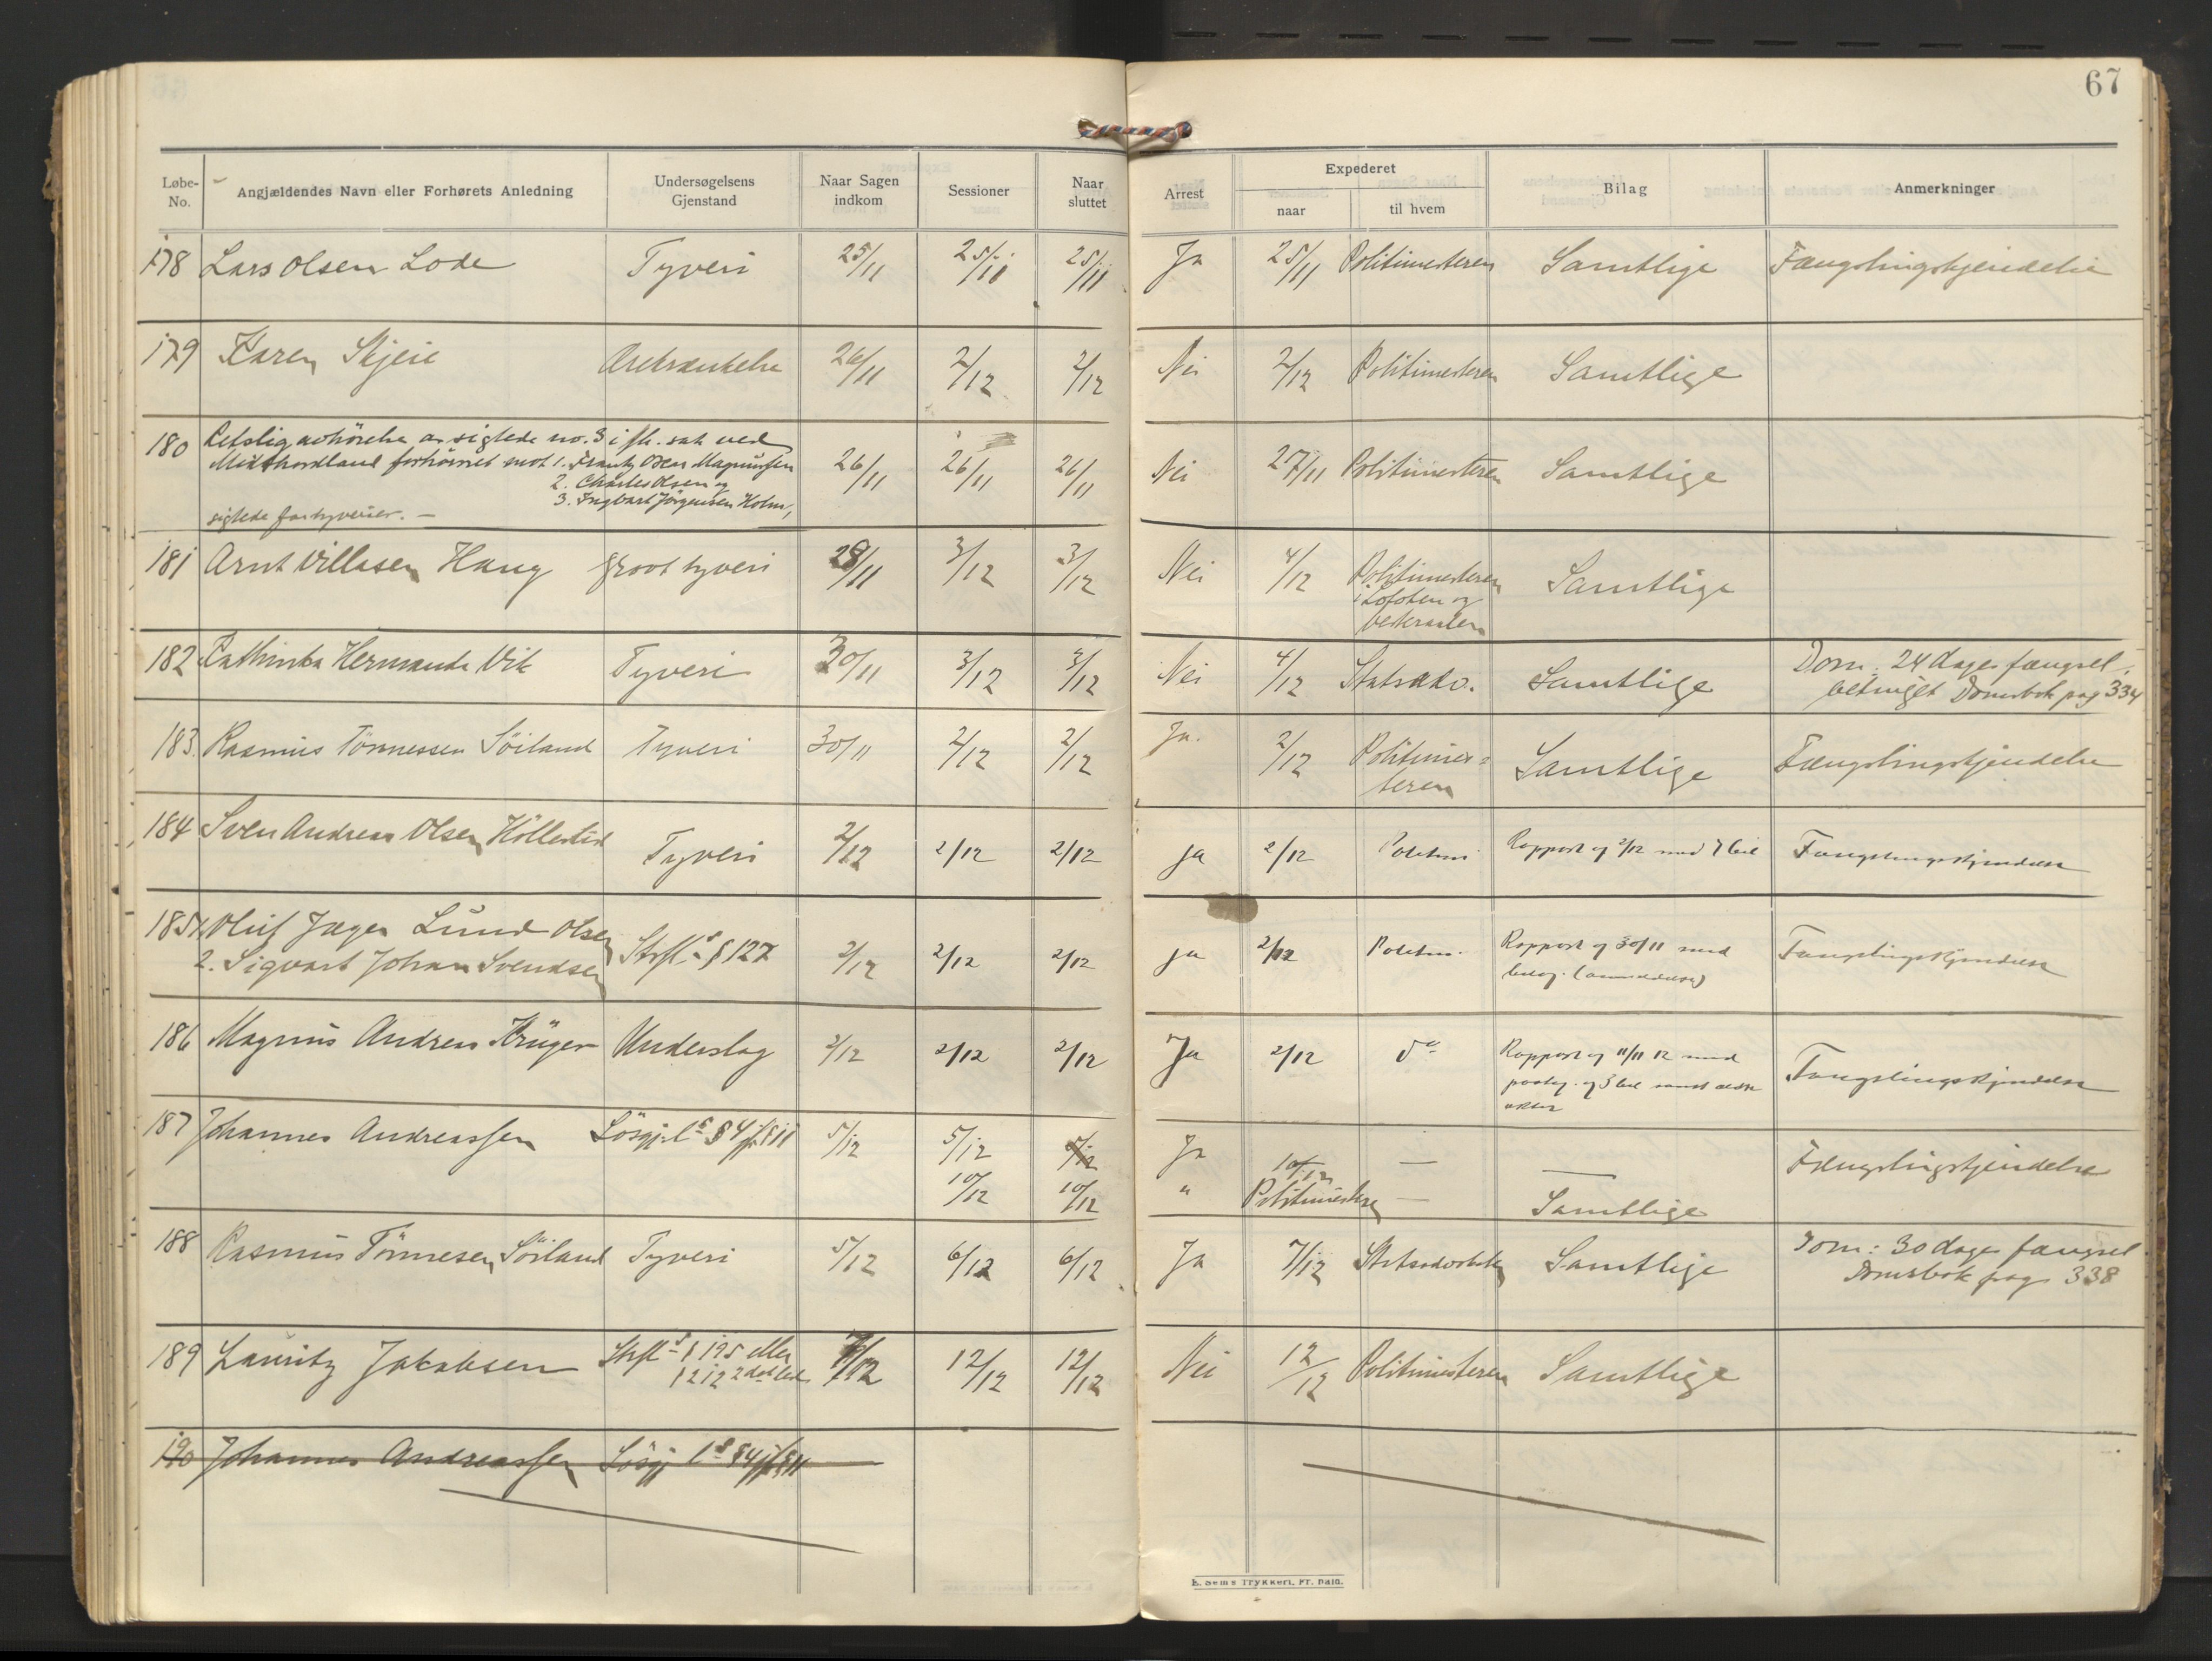 67
Løbe-No. Angjældendes Navn eller Forhørets Anledning Undersøgelsens Gjenstand Naar Sagen indkom Sessioner Naar sluttet Arrest Expederet naar til hvem Bilag Anmerkninger
178 Lars Olsen Lode Tyveri 25/11 25/11 25/11 Ja 25/11 Politimesteren Samtlige Fængslingskjendelse
179 Karen Skjeie Ærekrænkelse 26/11 2/12 2/12 Nei 2/12 Politimesteren Samtlige
180 Retslig avhörelse av sigtede no. 3 i sak ved
Midthordland forhörsret mot 1. Frantz Olsen Magnussen 26/11 26/11 26/11 Nei 27/11 Politimesteren Samtlige
2. Charles Olsen og
3. Ingvart Jörgensen Holm,
sigtede for tyverier. —
181 Arnt Villasen Haug Groot tyveri 28/11 3/12 3/12 Nei 4/12 Politimesteren Samtlige
i Lofoten og
Vesteraalen
182 Cathinka Hermanda Vik Tyveri 30/11 3/12 3/12 Nei 4/12 Statsadv. Samtlige Dom: 24 dages fængsel
betinget Domsbok pag 334
183 Rasmus Tönnessen Söiland Tyveri 30/11 2/12 2/12 Ja. 2/12 Politimes-
teren Samtlige Fængslingskjendelse
184 Sven Andreas Olsen Höllestad Tyveri 2/12 2/12 2/12 ja 2/12 Politim Rapport af 2/12 med 7 bil Fængslingskjendelse
185 1. Oluf Jæger Lund Olsen
2. Sigvart Johan Svendsen Strfl.s § 127 2/12 2/12 2/12 ja 2/12 Politim. Rapport af 30/11 med
bilag. (anmeldelse) Fængslingskjendelse
186 Magnus Andreas Krüger Underslag 2/12 2/12 2/12 Ja 2/12 do Rapport af 11/11 12 med
paateg. og 3 bil samt ældre
akter Fængslingskjendelse
187 Johannes Andreassen Lösgj. l.s § 4 jfr § 11 5/12 5/12 5/12 Ja — — Fængslingskjendelse
10/12 10/12 " 10/12 Politimesteren — Samtlige
188 Rasmus Tönnesen Söiland Tyveri 5/12 6/12 6/12 Ja 7/12 Statsadvokaten Samtlige Dom: 30 dages fængsel
Domsbok pag 338
189 Lauritz Jakobsen Strfl.s § 195 eller
§ 212 2det led 7/12 12/12 12/12 Nei 12/12 Politimesteren Samtlige
190 Johannes Andreassen Lösgj l.s § 4 jfr § 11
E. Sems Trykkeri, Fr. hald.